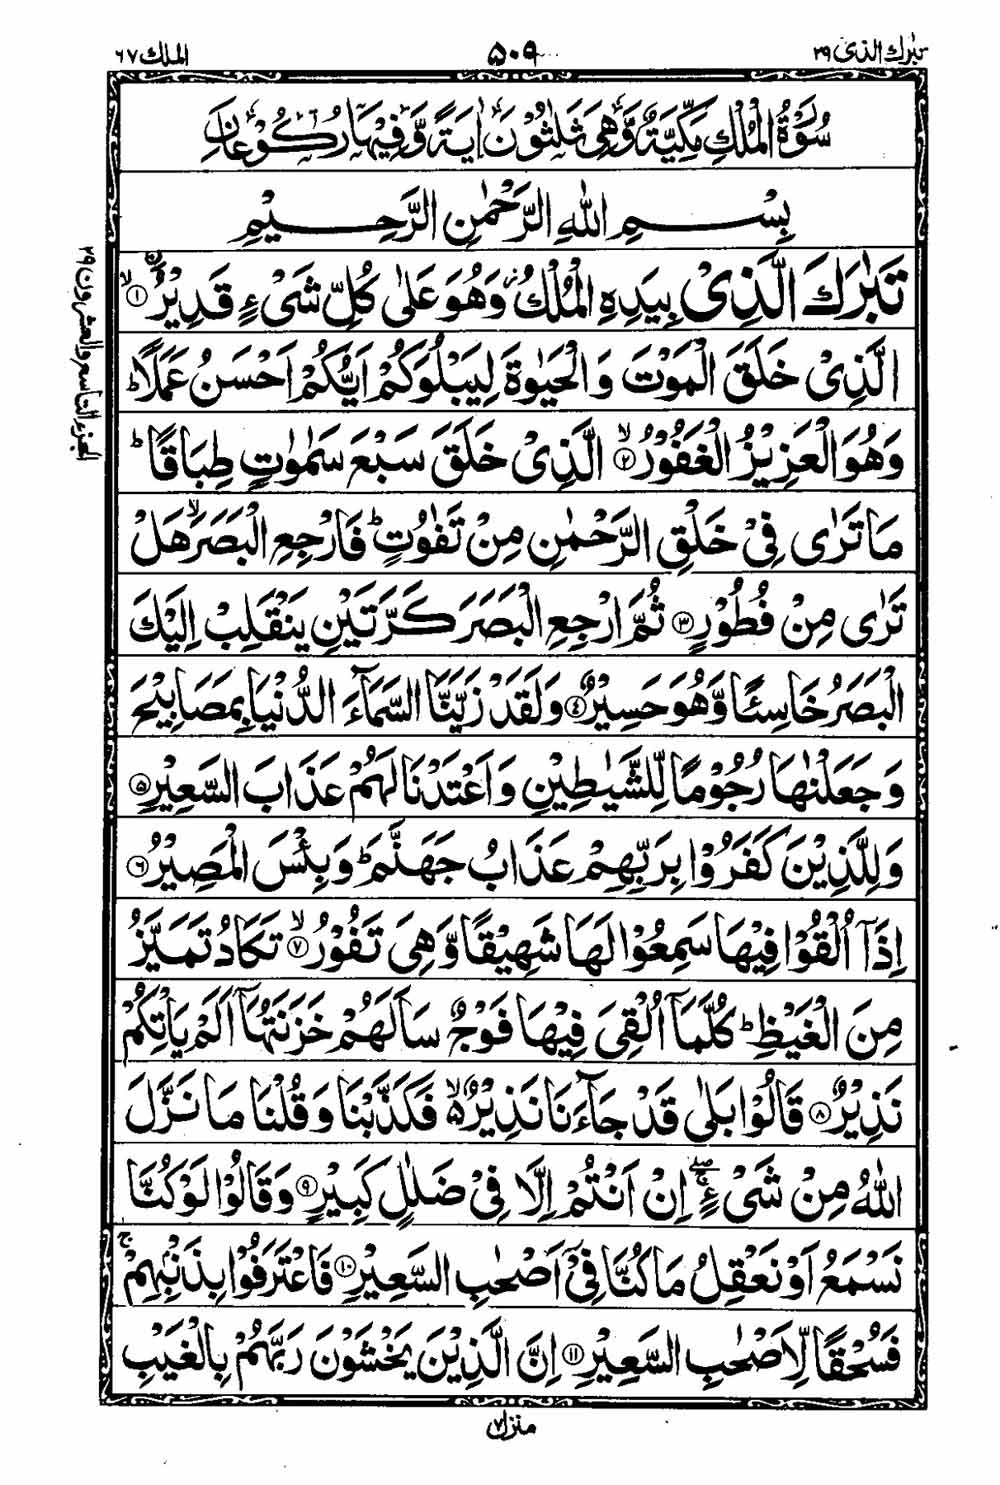 تبٰرك الذی ۲۹
۵۰۹
الملك ۶۷
سُوْرَةُ الْمُلْكِ مَكِّيَّةٌ وَّهِیَ ثَلٰثُوْنَ اٰيَةً وَّفِيْهَا رُكُوْعَانِ
بِسْمِ اللهِ الرَّحْمٰنِ الرَّحِيْمِ
تَبٰرَكَ الَّذِیْ بِيَدِهِ الْمُلْكُ ؗ وَهُوَ عَلٰى كُلِّ شَیْءٍ قَدِيْرُۙ ۝۱
الَّذِیْ خَلَقَ الْمَوْتَ وَ الْحَيٰوةَ لِيَبْلُوَكُمْ اَيُّكُمْ اَحْسَنُ عَمَلًا ؕ
وَهُوَ الْعَزِيْزُ الْغَفُوْرُۙ ۝۲ الَّذِیْ خَلَقَ سَبْعَ سَمٰوٰتٍ طِبَاقًا ؕ
مَا تَرٰى فِیْ خَلْقِ الرَّحْمٰنِ مِنْ تَفٰوُتٍ ؕ فَارْجِعِ الْبَصَرَ ۙ هَلْ
تَرٰى مِنْ فُطُوْرٍ ۝۳ ثُمَّ ارْجِعِ الْبَصَرَ كَرَّتَيْنِ يَنْقَلِبْ اِلَيْكَ
الْبَصَرُ خَاسِئًا وَّهُوَ حَسِيْرٌ ۝۴ وَلَقَدْ زَيَّنَّا السَّمَآءَ الدُّنْيَا بِمَصَابِيْحَ
وَجَعَلْنٰهَا رُجُوْمًا لِّلشَّيٰطِيْنِ وَاَعْتَدْنَا لَهُمْ عَذَابَ السَّعِيْرِ ۝۵
وَلِلَّذِيْنَ كَفَرُوْا بِرَبِّهِمْ عَذَابُ جَهَنَّمَ ؕ وَبِئْسَ الْمَصِيْرُ ۝۶
اِذَآ اُلْقُوْا فِيْهَا سَمِعُوْا لَهَا شَهِيْقًا وَّهِیَ تَفُوْرُۙ ۝۷ تَكَادُ تَمَيَّزُ
مِنَ الْغَيْظِ ؕ كُلَّمَآ اُلْقِیَ فِيْهَا فَوْجٌ سَاَلَهُمْ خَزَنَتُهَآ اَلَمْ يَاْتِكُمْ
نَذِيْرٌ ۝۸ قَالُوْا بَلٰى قَدْ جَآءَنَا نَذِيْرٌ ۙ۬ فَكَذَّبْنَا وَقُلْنَا مَا نَزَّلَ
اللهُ مِنْ شَیْءٍ ۖۚ اِنْ اَنْتُمْ اِلَّا فِیْ ضَلٰلٍ كَبِيْرٍ ۝۹ وَقَالُوْا لَوْ كُنَّا
نَسْمَعُ اَوْ نَعْقِلُ مَا كُنَّا فِیْۤ اَصْحٰبِ السَّعِيْرِ ۝۱۰ فَاعْتَرَفُوْا بِذَنْۢبِهِمْ ۚ
فَسُحْقًا لِّاَصْحٰبِ السَّعِيْرِ ۝۱۱ اِنَّ الَّذِيْنَ يَخْشَوْنَ رَبَّهُمْ بِالْغَيْبِ
الجزء التاسع والعشرون ۲۹
منزل ۷